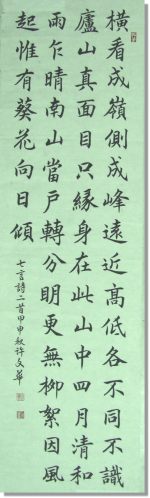 橫看成嶺側成峰遠近高低各不同不識
廬山真面目只緣身在此山中四月清和
雨乍晴南山當戶轉分明更無柳絮因風
起惟有葵花向日傾
七言詩二首甲申秋許文華